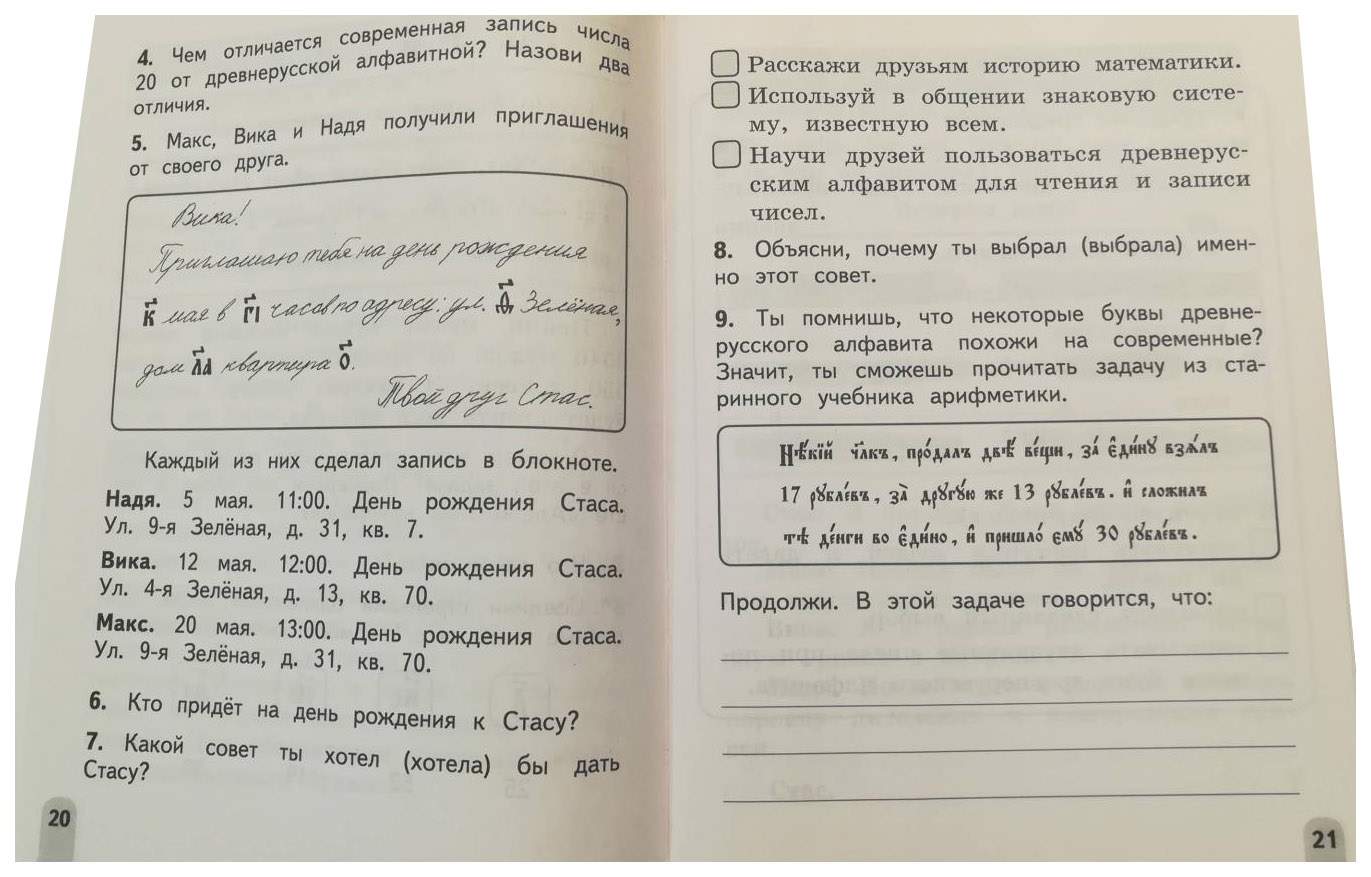 4. Чем отличается современная запись числа
20 от древнерусской алфавитной? Назови два
отличия.
5. Макс, Вика и Надя получили приглашения
от своего друга.
Вика!
Приглашаю тебя на день рождения
К҃ мая в г҃і часов по адресу: ул. Ѳ҃ Зелёная,
дом л҃а квартира о҃.
Твой друг Стас.
Каждый из них сделал запись в блокноте.
Надя. 5 мая. 11:00. День рождения Стаса.
Ул. 9-я Зелёная, д. 31, кв. 7.
Вика. 12 мая. 12:00. День рождения Стаса.
Ул. 4-я Зелёная, д. 13, кв. 70.
Макс. 20 мая. 13:00. День рождения Стаса.
Ул. 9-я Зелёная, д. 31, кв. 70.
6. Кто придёт на день рождения к Стасу?
7. Какой совет ты хотел (хотела) бы дать
Стасу?
20
Расскажи друзьям историю математики.
Используй в общении знаковую систе-
му, известную всем.
Научи друзей пользоваться древнерус-
ским алфавитом для чтения и записи
чисел.
8. Объясни, почему ты выбрал (выбрала) имен-
но этот совет.
9. Ты помнишь, что некоторые буквы древне-
русского алфавита похожи на современные?
Значит, ты сможешь прочитать задачу из ста-
ринного учебника арифметики.
Нѣ́кїй чл҃къ, про́далъ двѣ̀ ве́щи, за́ є҆ди́нꙋ взѧ́лъ
17 рꙋбле́въ, за̀ дрꙋгꙋ́ю же 13 рꙋбле́въ. и҆ сложилъ
тѣ де́нги во є҆ди́но, и҆ пришло́ емꙋ̀ 30 рꙋбле́въ.
Продолжи. В этой задаче говорится, что:
21